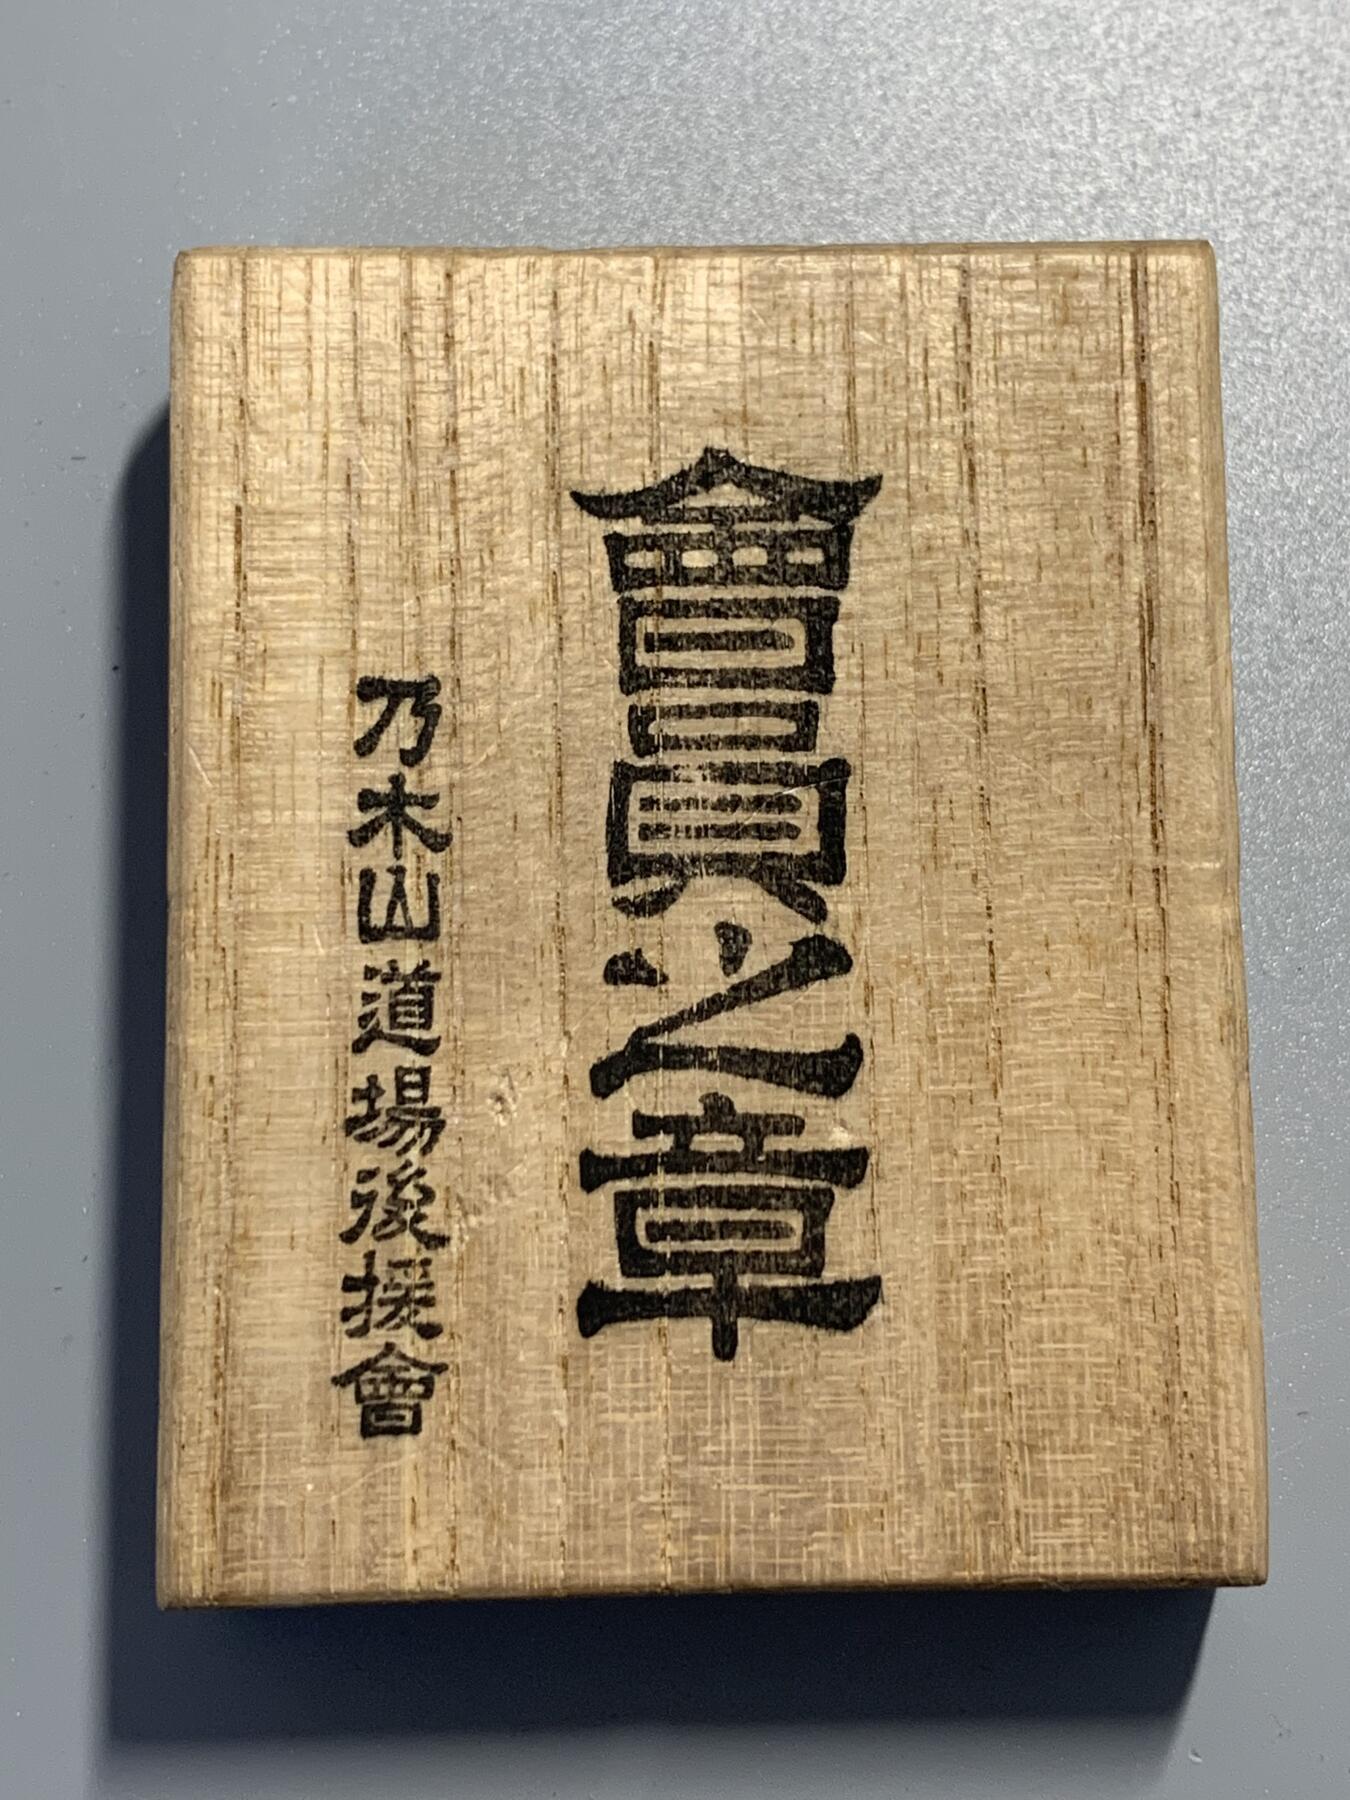 會員之章
乃木山道場後援會